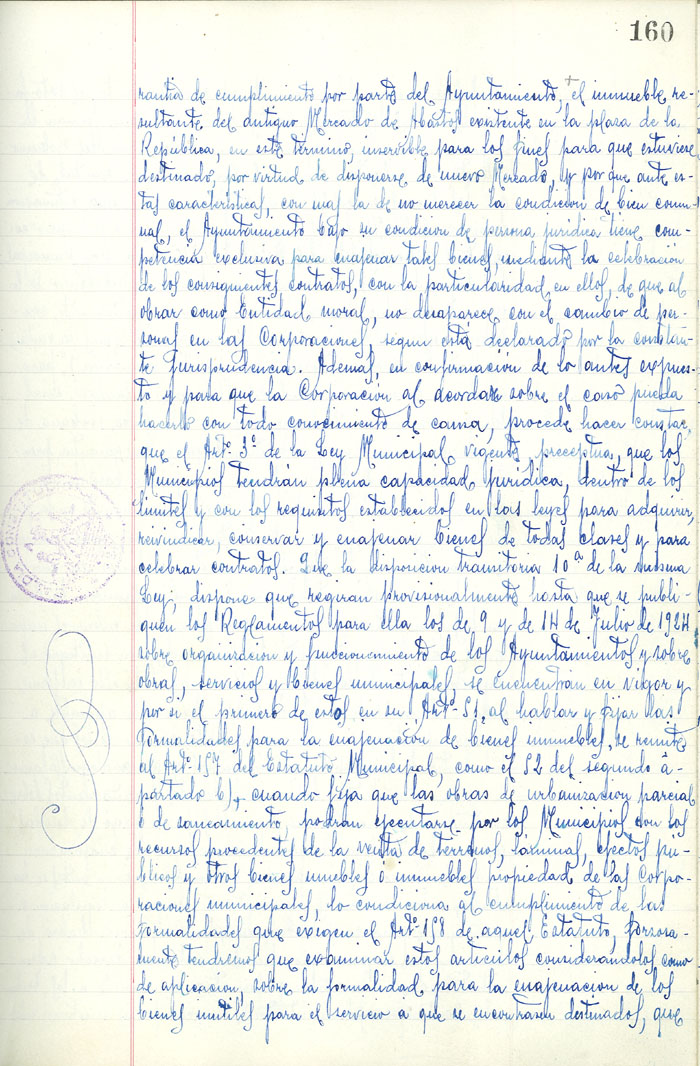 160
rantia de cumplimiento por parte del Ayuntamiento, el inmueble re-
sultante del antiguo Mercado de Abastos existente en la plaza de la
República, en este termino, inservible para los fines para que estuviere
destinado, por virtud de disponerse de nuevo Mercado, y por que ante es-
tas caracteristicas, con mas la de no merecer la condicion de bien comu-
nal, el Ayuntamiento bajo su condicion de persona juridica tiene com-
petencia exclusiva para enajenar tales bienes, mediante la celebración
de los consiguientes contratos, con la particularidad en ellos, de que al
obrar como Entidad moral, no desaparece con el cambio de per-
sonas en las Corporaciones, segun está declarado por la constan-
te Jurisprudencia. Ademas, en confirmacion de lo antes expues-
to y para que la Corporación al acordar sobre el caso pueda
hacerlo con todo conocimiento de causa, procede hacer constar,
que el Artº. 3º de la Ley Municipal vigente, preceptua, que los
Municipios tendrán plena capacidad juridica, dentro de los
limites y con los requisitos establecidos en las leyes para adquirir,
reivindicar, conservar y enajenar bienes de todas clases y para
celebrar contratos. Que la disposicion transitoria 10ª de la misma
Ley, dispone que regiran provisionalmente hasta que se publi-
quen los Reglamentos para ella los de 9 y de 14 de Julio de 1924
sobre organizacion y funcionamiento de los Ayuntamientos y sobre
obras, servicios y bienes municipales, se encuentran en vigor y
por si el primero de estos en su Artº. 51, al hablar y fijar las
formalidades para la enajenación de bienes inmuebles, se remite
al Artº. 157 del Estatuto Municipal, como el 52 del segundo a-
partado b), cuando fija que las obras de urbanizacion parcial
o de saneamiento, podran ejecutarse por los Municipios con los
recursos procedentes de la venta de terrenos, láminas, efectos pu-
blicos y otros bienes muebles o inmuebles propiedad de las Corpo-
raciones municipales, lo condiciona al cumplimiento de las
formalidades que exigen el Artº. 158 de aquel Estatuto, forzosa-
mente tendremos que examinar estos articulos considerandolos como
de aplicacion, sobre la formalidad para la enajenacion de los
bienes inutiles para el servicio a que se encontrasen destinados, que